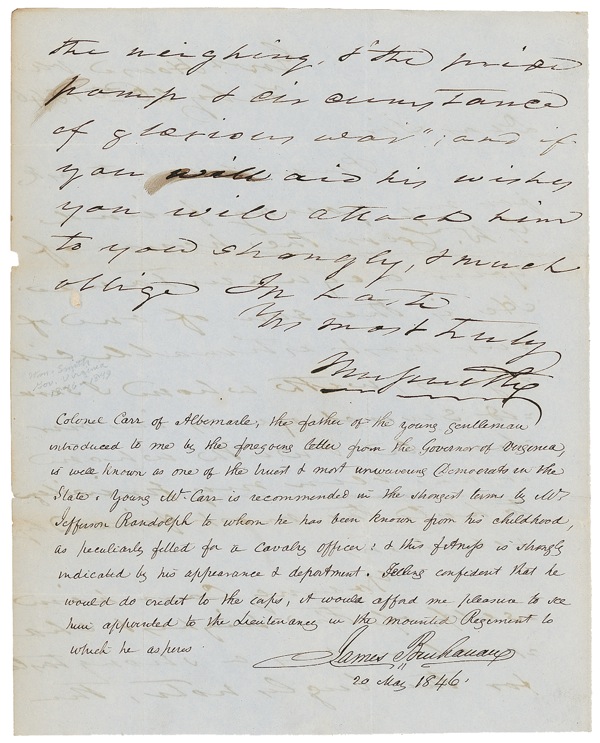 the neighing, & the pride
pomp & circumstance
of glorious war"; and if
you will aid his wishes
you will attach him
to you strongly, & much
oblige In haste
Yrs most truly
Wm Smith
Wm. Smith
Gov. Virginia
1846-1849
Colonel Carr of Albemarle, the father of the young gentleman
introduced to me by the foregoing letter from the Governor of Virginia,
is well known as one of the truest & most unwavering Democrats in the
State. Young Mr Carr is recommended in the strongest terms by Mr
Jefferson Randolph to whom he has been known from his childhood,
as peculiarly fitted for a cavalry officer: & this fitness is strongly
indicated by his appearance & deportment. Feeling confident that he
would do credit to the corps, it would afford me pleasure to see
him appointed to the Lieutenancy in the mounted Regiment to
which he aspires.
James Buchanan
20 May 1846.